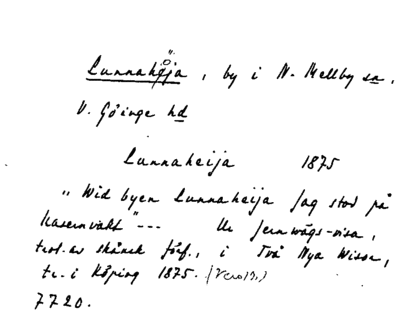 Lunnahöja, by i N. Mellby sn,
V. Göinge hd
Lunnaheija 1875
"Wid byen Lunnaheija Jag stod på
kasernvakt" --- Ur Jernwägs-visa,
trol. av skånsk förf., i Två Nya Wisor,
tr. i Köping 1875.
7720.